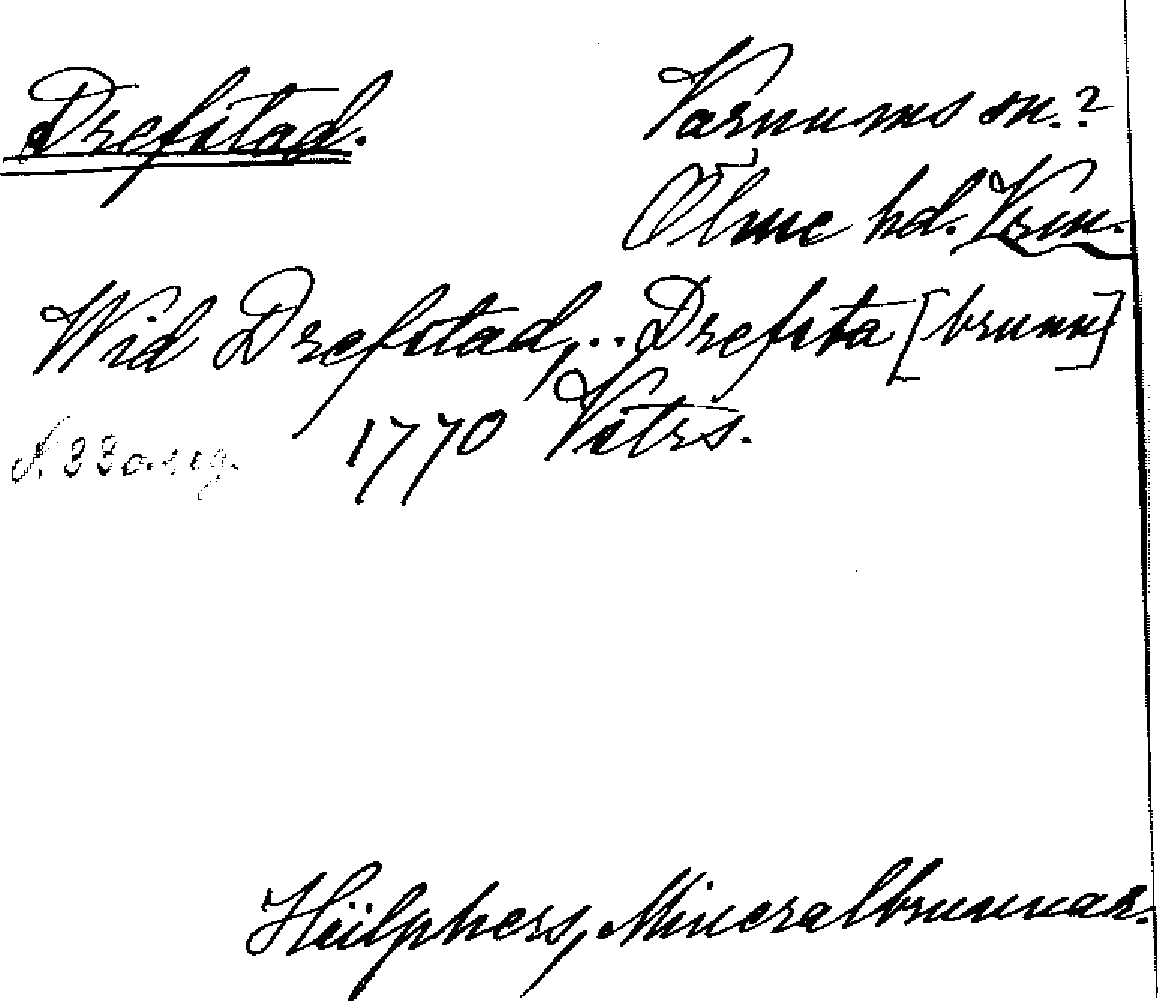 Drefstad.
Varnums sn.?
Ölme hd. Vrm.
Wid Drefstad, .. Drefsta [brunn]
1770 Vitrs.
Hülphers, Mineralbrunnar.